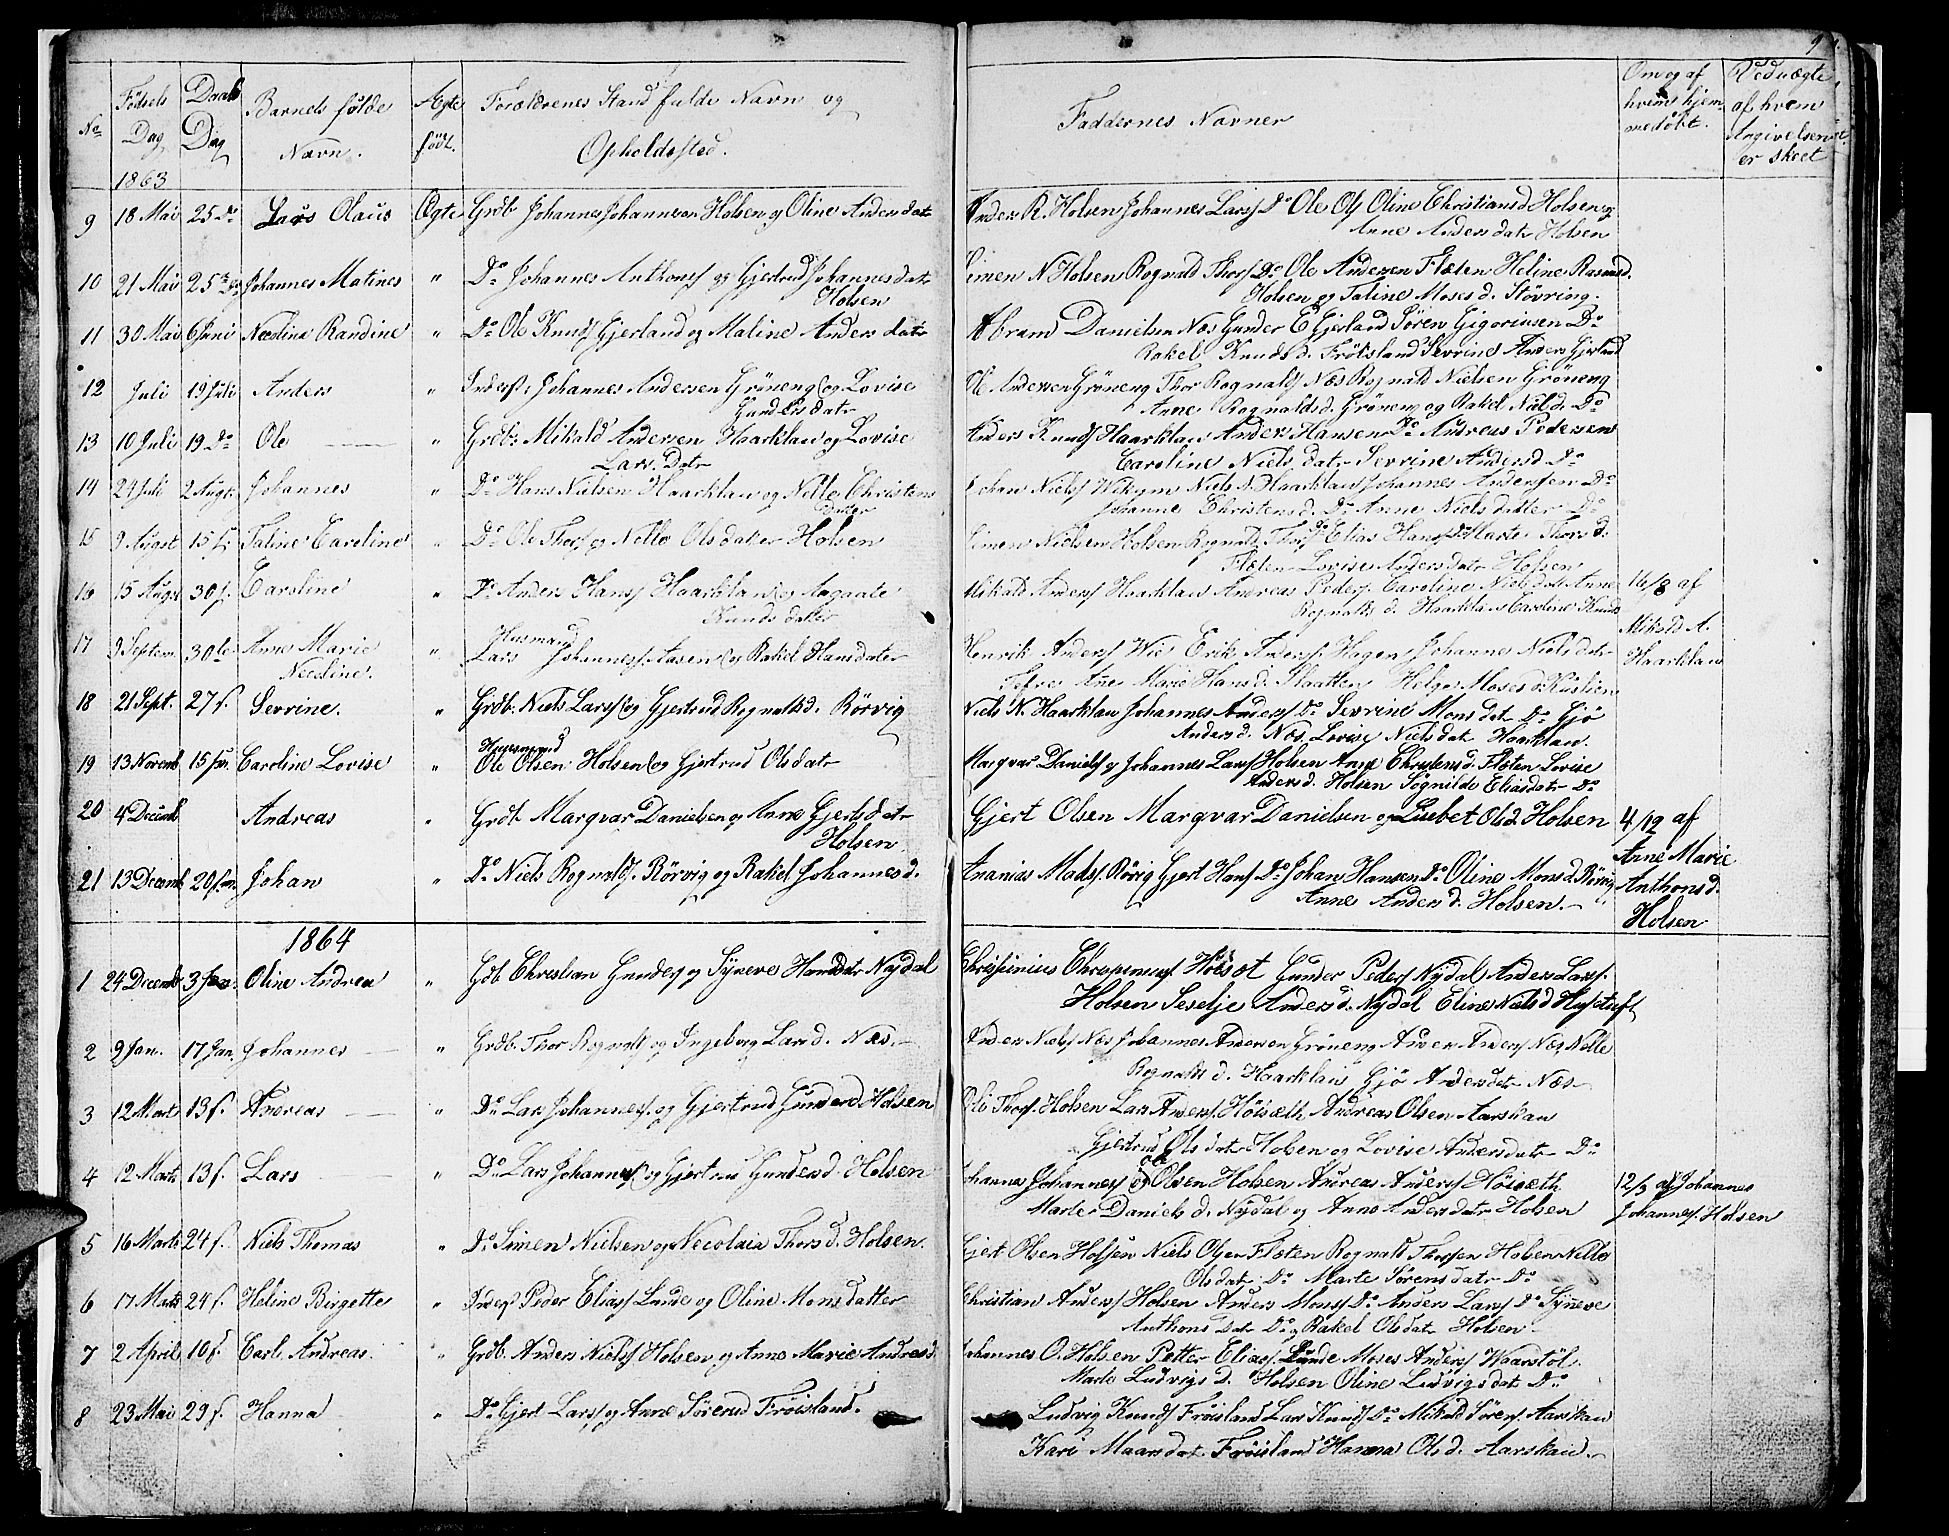 9
No
Fødsels Dag
Daabs Dag
Barnets fulde Navn.
Ægte født.
Forældrenes Stand fulde Navn og Opholdssted.
Faddernes Navner
Om og af hvem hjemmedøbt.
Ved uægte af hvem Angivelsen er skeet
1863
9 18 Mai 25 Do Lars Olaus Ægte Grdb Johannes Johannesen Holsen og Oline Anders datr
Anders R. Holsen Johannes Larss Do Ole Ols Oline Christians d Holsen og
Anne Anders datr Holsen
10 21 Mai 25 Johannes Matines " Do Johannes Anthons og Gjertrud Johannes datr
Holsen
Simen N Holsen Rognald Thors Do Ole Andersen Flæten Heline Rasmusd.
Holsen og Taline Moses d. Støvring.
11 30 Mai 6 Juni Necoline Randine " Do Ole Knuds Gjerland og Maline Anders datr
Abram Danielsen Næs Gunder E Gjerland Søren Gigoriusen Do
Rakel Knuds d. Frøisland Sevrine Anders Gjerland
12 Juli 19 Juli Anders " Inders: Johannes Andersen Grøneng og Lovise
Gunders datr
Ole Andersen Grøneng Thor Rognalds Næs Rognald Nielsen Grøneng
Anne Rognalds d. Grøneng og Rakel Niels d. Do
13 10 Juli 19 Do Ole " Grdb: Mikald Andersen Haarklau og Lovise
Lars Datr
Anders Knuds Haarklau Anders Hansen Do Andreas Pedersen
Caroline Niels datr Sevrine Anders d Do
14 24 Juli 2 Augst Johannes " Do Hans Nielsen Haarklau og Nelle Christens
datter
Johan Niels Wikum Niels N. Haarklau Johannes Andersen Do
Johanne Christens d. Do Anne Niels datter Do
15 9 Augst 15 f. Taline Caroline " Do Ole Thors og Nelle Ols datter Holsen
Simen Nielsen Holsen Rognald Thors Do Elias Hans Do Marte Thors d.
Flæten Lovise Anders datr Holsen
16 15 Augst 30 f. Caroline " Do Anders Hans Haarklau og Aagaate
Knuds datter
Mikald Anders Haarklau Andreas Peders Caroline Niels datr Anne
Rognalds d. Haarklau Caroline Knuds
16/8 af
Mikald A.
Haarklau
17 9 Septem. 30 Anne Marie
Necoline.
" Husmand
Lars Johannes Aasen og Rakel Hans dater
Henrik Anders Wie Erik Anders Hagen Johannes Niels datr
Anne Marie Hans d. Slaatten Helge Moses d.
18 21 Sept. 27 f. Sevrine. " Grdb. Niels Lars og Gjertrud Rognalds d. Rørvig
Niels N. Haarklau Johannes Anders Do Sevrine Mons dat Do Gjø
Anders d. Næs Lovise Niels dat Haarklau.
19 13 Novemb 15 Caroline Lovise " Husmand
Ole Olsen Holsen og Gjertrud Ols datr
Margvar Daniels og Johannes Lars Holsen Anne Christens d. Flæten Lovise
Anders d. Holsen Sognilde Elias datr Do
20 4 Decemb Andreas " Grdb Margvar Danielsen og Anne Gjerts datr
Holsen
Gjert Olsen Margvar Danielsen og Lisebet Ols d. Holsen 4/12 af
Anne Marie
Anthons d.
Holsen
21 13 Decemb 20 Johan " Do Niels Rognalds. Rørvig og Rakel Johannes d.
Ananias Mads. Rørvig Gjert Hans Do Johan Hansen Do Oline Mons d. Rørvig
Anne Anders d. Holsen.
1864
1 24 Decemb 3 Jan Oline Andrea " Gdb Christian Gunders og Syneve Hans datr Nydal
Høisæt Gunder Peders Nydal Anders Lars.
Holsen Seselje Anders d. Nydal Eline Niels d
2 9 Jan. 17 Jan. Johannes " Grdb. Thor Rognalds og Ingeborg Lars d. Næs.
Anders Niels Næs Johannes Andersen Grøneng Anders Anders Næs Nelle
Rognalds d. Haarklau Gjø Anders datr Næs
3 12 Marts 13 f. Andreas " Do Lars Johannes. og Gjertrud Gunders d Holsen
Ole Thors. Holsen Lars Anders. Høisæth Andreas Olsen Aarskau
Gjertrud Ols datr Holsen og Lovise Anders datr Do
4 12 Marts 13 f. Lars " Do Lars Johannes og Gjertrud Gunders d. Holsen
Johannes Johannes og Ole Olsen Holsen Andreas Anders Høisæth
Marte Daniels d. Nydal og Anne Anders datr Holsen
12/3 af Johannes
Johannes. Holsen
5 16 Marts 24 f. Niels Thomas " Do Simen Nielsen og Necolaia Thors d. Holsen.
Gjert Olsen Holsen Niels Olsen Flæten Rognald Thorsen Holsen Nelle
Ols datr Do Marte Sørens datr Do
6 17 Marts 24 f. Heline Birgette " Inders Peder Elias Lunde og Oline Mons datter
Christian Anders Holsen Anders Mons Do Anders Lars Do Syneve
Anthons Datr Do og Rakel Ols datr Holsen
7 2 April 10 f. Carl Andreas. " Grdb. Anders Niels Holsen og Anne Marie Andreas d.
Johannes O. Holsen Petter Elias. Lunde Moses Anders Waarstøl
Marte Ludvigs d. Holsen Oline Ludvigs datr Do
8 23 Mai 29 f. Hanna " Do Gjert Lars og Anne Sørens d Frøisland.
Ludvig Knuds Frøisland Lars Knuds Do Mikald Sørens Aarskau
Kari Maars datr Frøisland Hanna Ols d. Aarskau